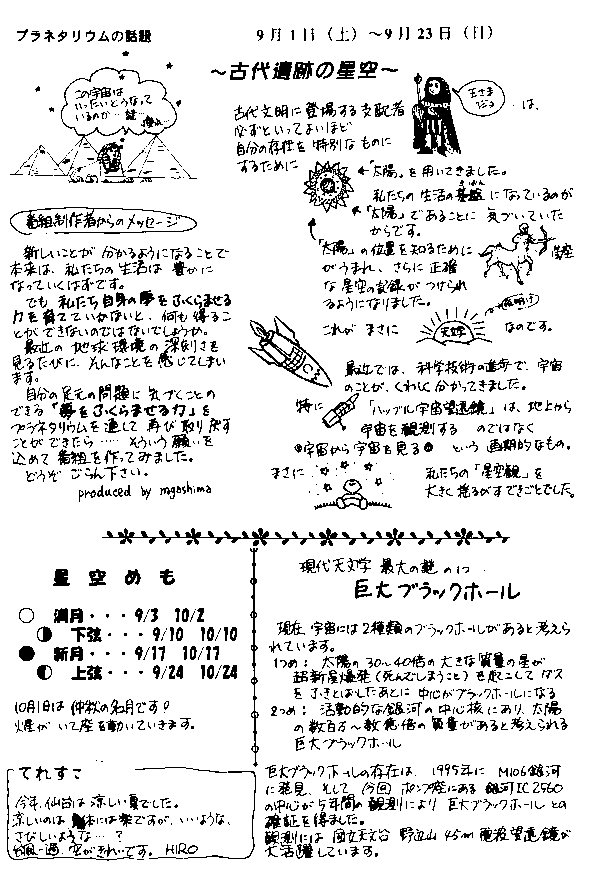 プラネタリウムの話題
9月1日（土）～9月23日（日）
～古代遺跡の星空～
この宇宙は
いったいどうなって
いるのか… 謎
古代文明に登場する支配者
は、
必ずといってよいほど
自分の存在を特別なものに
するために
「太陽」を用いてきました。
私たちの生活の基盤になっているのが
「太陽」であることに気づいていた
からです。
「太陽」の位置を知るために
星座
がうまれ、さらに正確
な星空の記録がつけられ
るようになりました。
これが まさに
天文学
なのです。
最近では、科学技術の進歩で、宇宙
のことが、くわしく分かってきました。
特に
「ハッブル宇宙望遠鏡」は、地上から
宇宙を観測する のではなく
宇宙から宇宙を見る という 画期的なもの。
まさに
私たちの「星空観」を
大きく揺るがすできごとでした。
番組制作者からのメッセージ
新しいことが 分かるようになることで
本来は、私たちの生活は 豊かに
なっていくはずです。
でも 私たち自身の夢をふくらませる
力を育てていかないと、何も得るこ
とができないのではないでしょうか。
最近の 地球環境の深刻さを
見るたびに、そんなことを感じてしまい
ます。
自分の足元の問題に気づくことの
できる「夢をふくらませる力」を
プラネタリウムを通して 再び取り戻す
ことができたら…… そういう願いを
込めて 番組を作ってみました。
どうぞ ごらん下さい。
produced by mgashima
星空めも
○ 満月・・・9/3 10/2
◑ 下弦・・・9/10 10/10
● 新月・・・9/17 10/17
◐ 上弦・・・9/24 10/24
10月1日は 仲秋の名月です!
火星が いて座を動いていきます。
てれすこ
今年、仙台は涼しい夏でした。
涼しいのは 体には楽ですが、いいような、
さびしいような… ?
台風一過、空がきれいです。 HIRO
現代天文学 最大の謎の1つ…
巨大ブラックホール
現在、宇宙には2種類のブラックホールがあると考えら
れています。
1つめ： 太陽の30～40倍の大きな質量の星が
超新星爆発（死んでしまうこと）を起こして ガス
をふきとばしたあとに 中心がブラックホールになる
2つめ： 活動的な銀河の中心核にあり、太陽
の数百万～数億倍の質量があると考えられる
巨大ブラックホール
巨大ブラックホールの存在は、1995年に M106銀河
に発見、そして 今回 ポンプ座にある 銀河IC2560
の中心が5年間の観測により 巨大ブラックホールとの
確証を得ました。
観測には 国立天文台 野辺山45m電波望遠鏡が
大活躍しています。